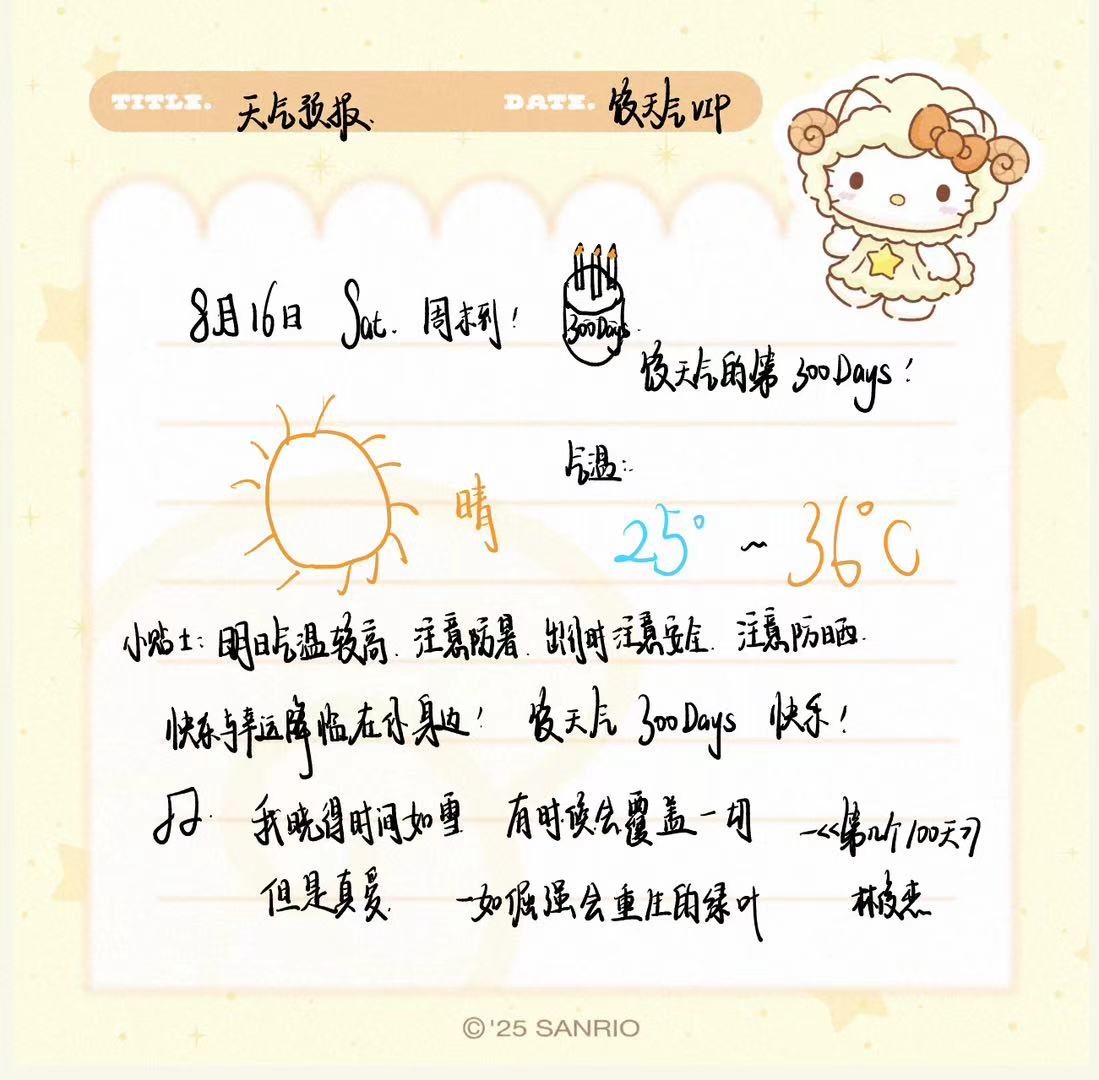 TITLE. 天气预报. DATE. 饺天气VIP
8月16日 Sat. 周末到！
300Days.
饺天气的第 300Days！
气温：
晴
25° ~ 36°C
小贴士：明日气温较高. 注意防暑. 出行时注意安全. 注意防晒.
快乐与幸运降临在你身边！ 饺天气 300Days 快乐！
我晓得时间如雪 有时候会覆盖一切 -<<第几个100天>>
但是真爱. 一如倔强会重生的绿叶 林俊杰
©'25 SANRIO